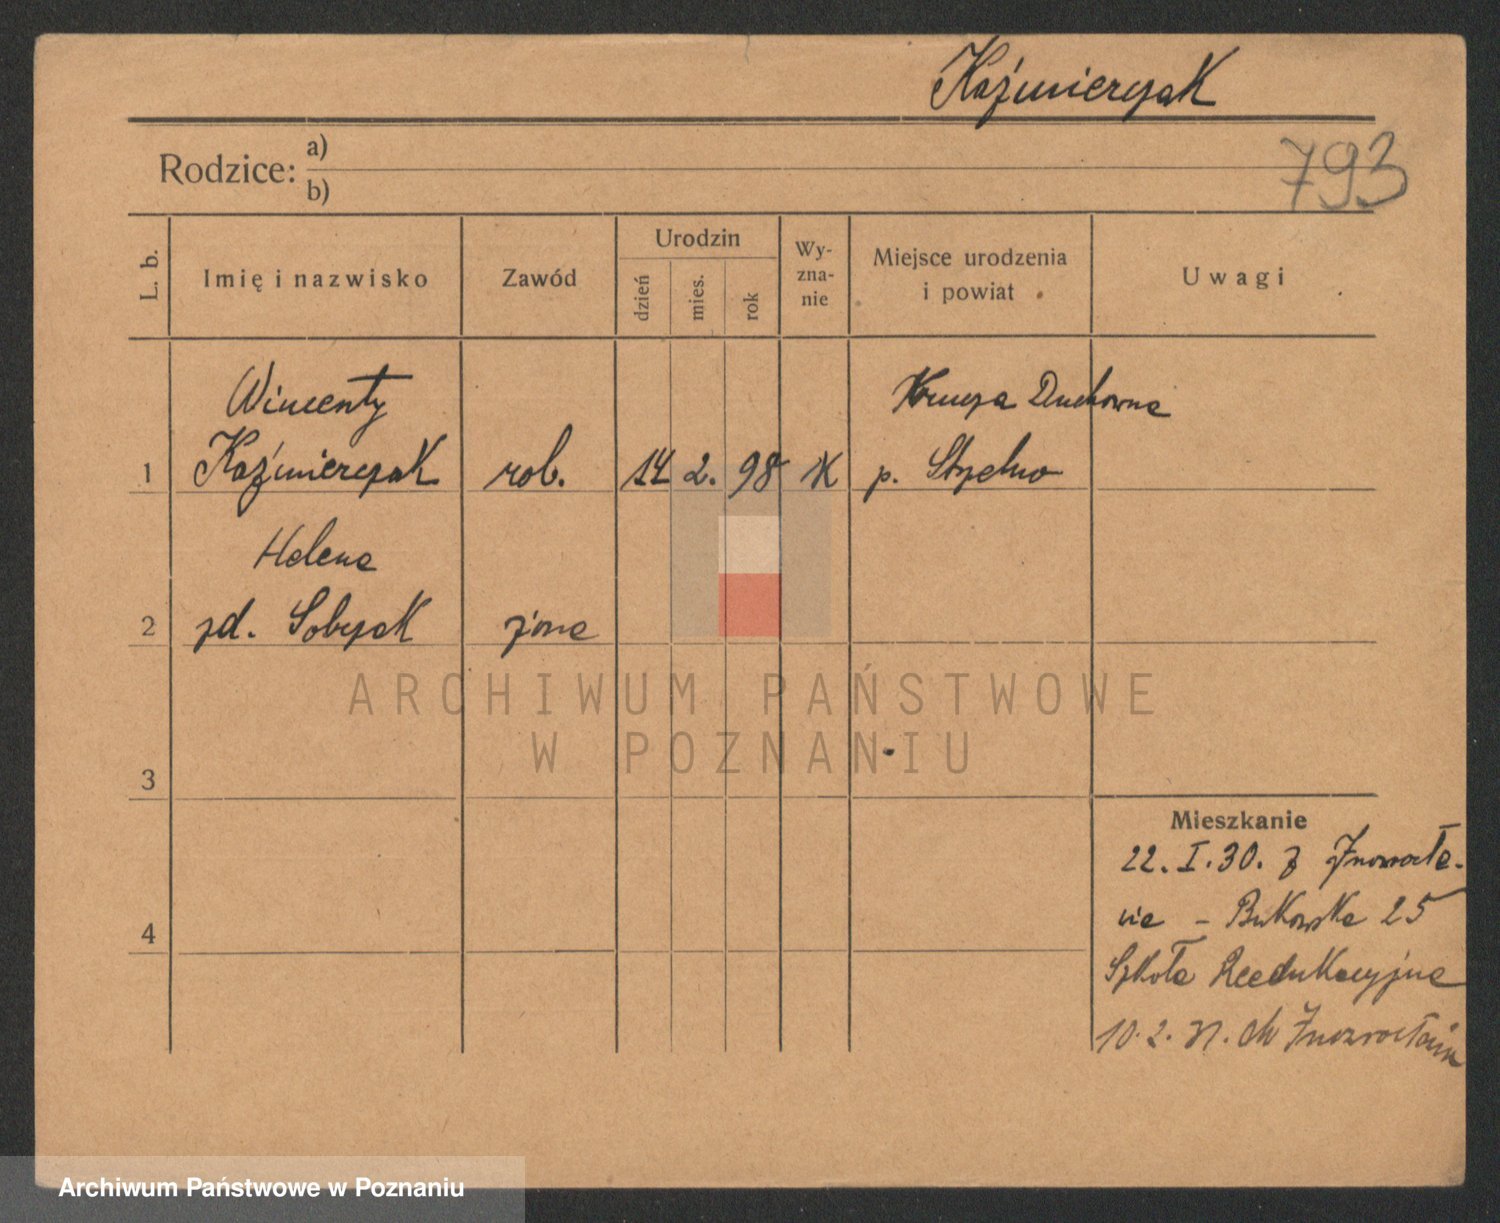 Kaźmierczak
Rodzice: a)
b)
793
L. b.
Imię i nazwisko
Zawód
Urodzin
dzień
mies.
rok
Wy-
zna-
nie
Miejsce urodzenia
i powiat
Uwagi
Wincenty
Krusza Duchowna
1 Kaźmierczak rob. 14 2. 98 K p. Strzelno
Helena
2 zd. Sobczak żona
ARCHIWUM PAŃSTWOWE
W POZNANIU
3
Mieszkanie
22. I. 30. z Inowrocła-
wia - Bukowska 25
4
Szkoła Reedukacyjna
10. 2. 31. do Inowrocławia
Archiwum Państwowe w Poznaniu